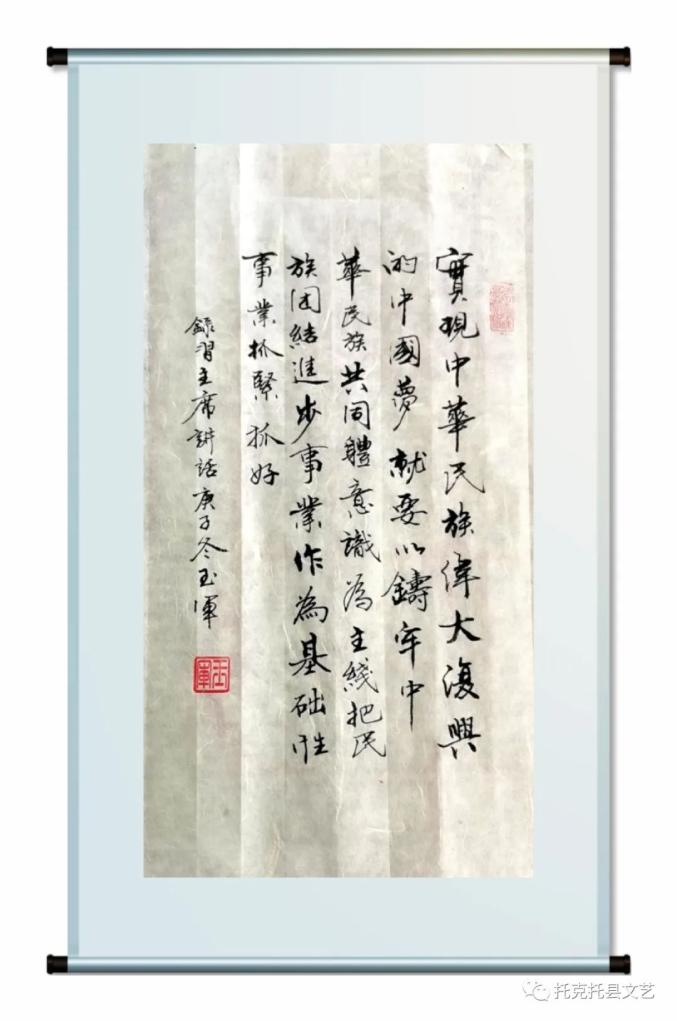 實現中華民族偉大復興
的中國夢就要以鑄牢中
華民族共同體意識為主綫把民
族团結進步事業作為基础性
事業抓緊抓好
録習主席講話庚子冬玉軍
托克托县文艺